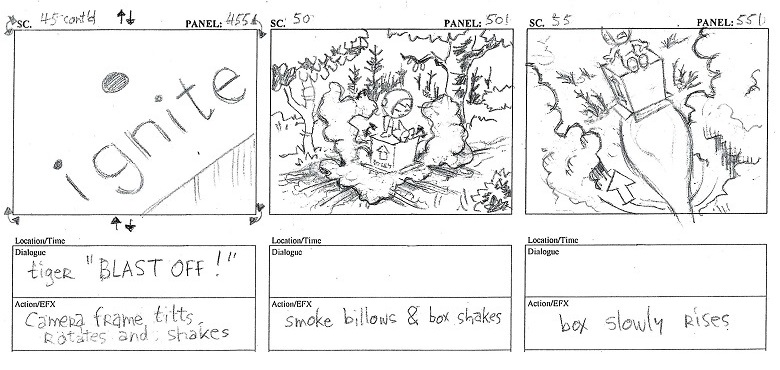 SC. 45 cont'd PANEL: 455
ignite
Location/Time
Dialogue
tiger "BLAST OFF!"
Action/EFX
Camera frame tilts,
Rotates and shakes
SC. 50 PANEL: 501
Location/Time
Dialogue
Action/EFX
smoke billows & box shakes
SC. 55 PANEL: 551
Location/Time
Dialogue
Action/EFX
box slowly Rises